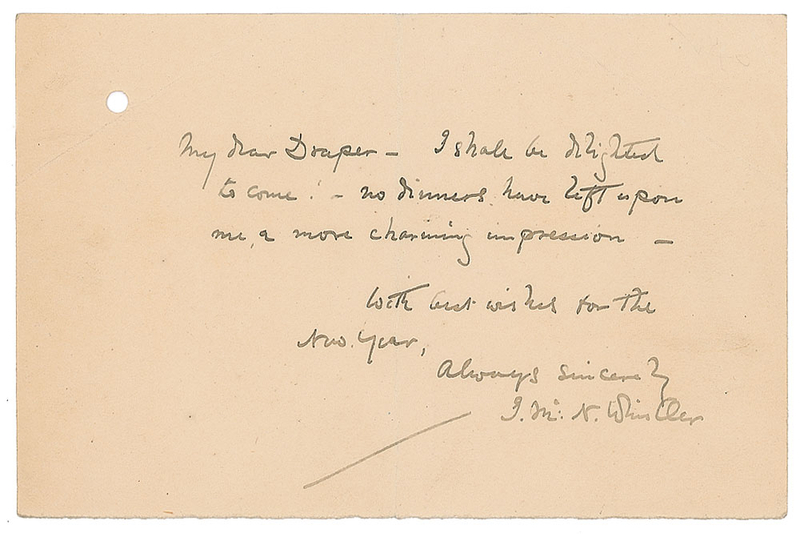 My dear Draper — I shall be delighted
to come! — no dinners have left upon
me, a more charming impression —
With best wishes for the
New Year,
Always sincerely
J. McN. Whistler